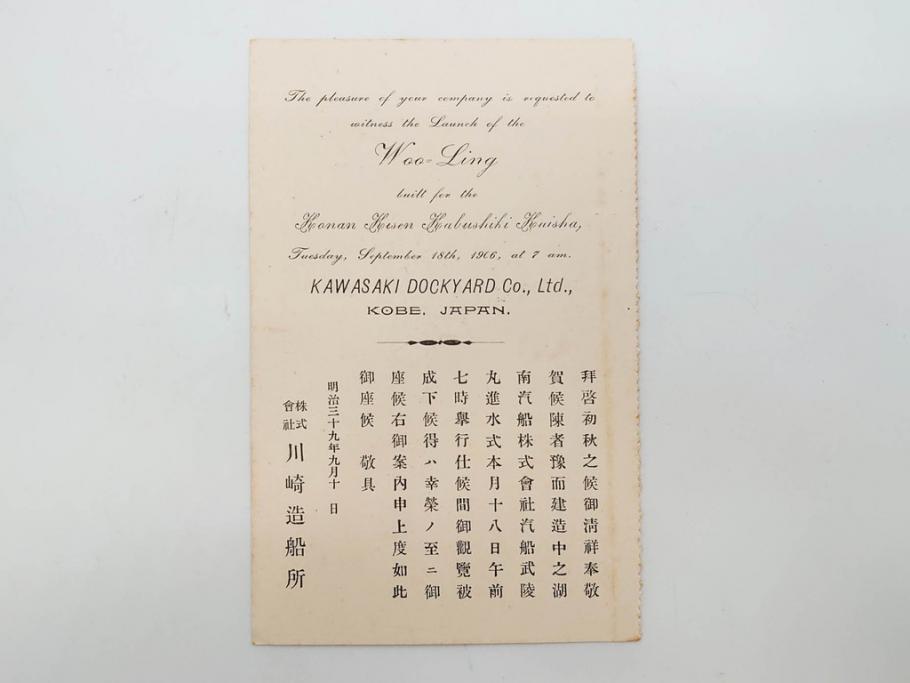 The pleasure of your company is requested to
witness the Launch of the
Woo-Ling
built for the
Konan Kisen Kabushiki Kuisha,
Tuesday, September 18th, 1906, at 7 am.
KAWASAKI DOCKYARD Co., Ltd.,
KOBE, JAPAN.
拜啓初秋之候御淸祥奉敬
賀候陳者豫而建造中之湖
南汽船株式會社汽船武陵
丸進水式本月十八日午前
七時擧行仕候間御觀覽被
成下候得ハ幸榮ノ至ニ御
座候右御案內申上度如此
御座候 敬具
明治三十九年九月十 日
株式會社 川崎造船所